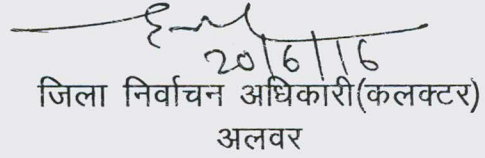 20/6/16
जिला निर्वाचन अधिकारी(कलक्टर)
अलवर